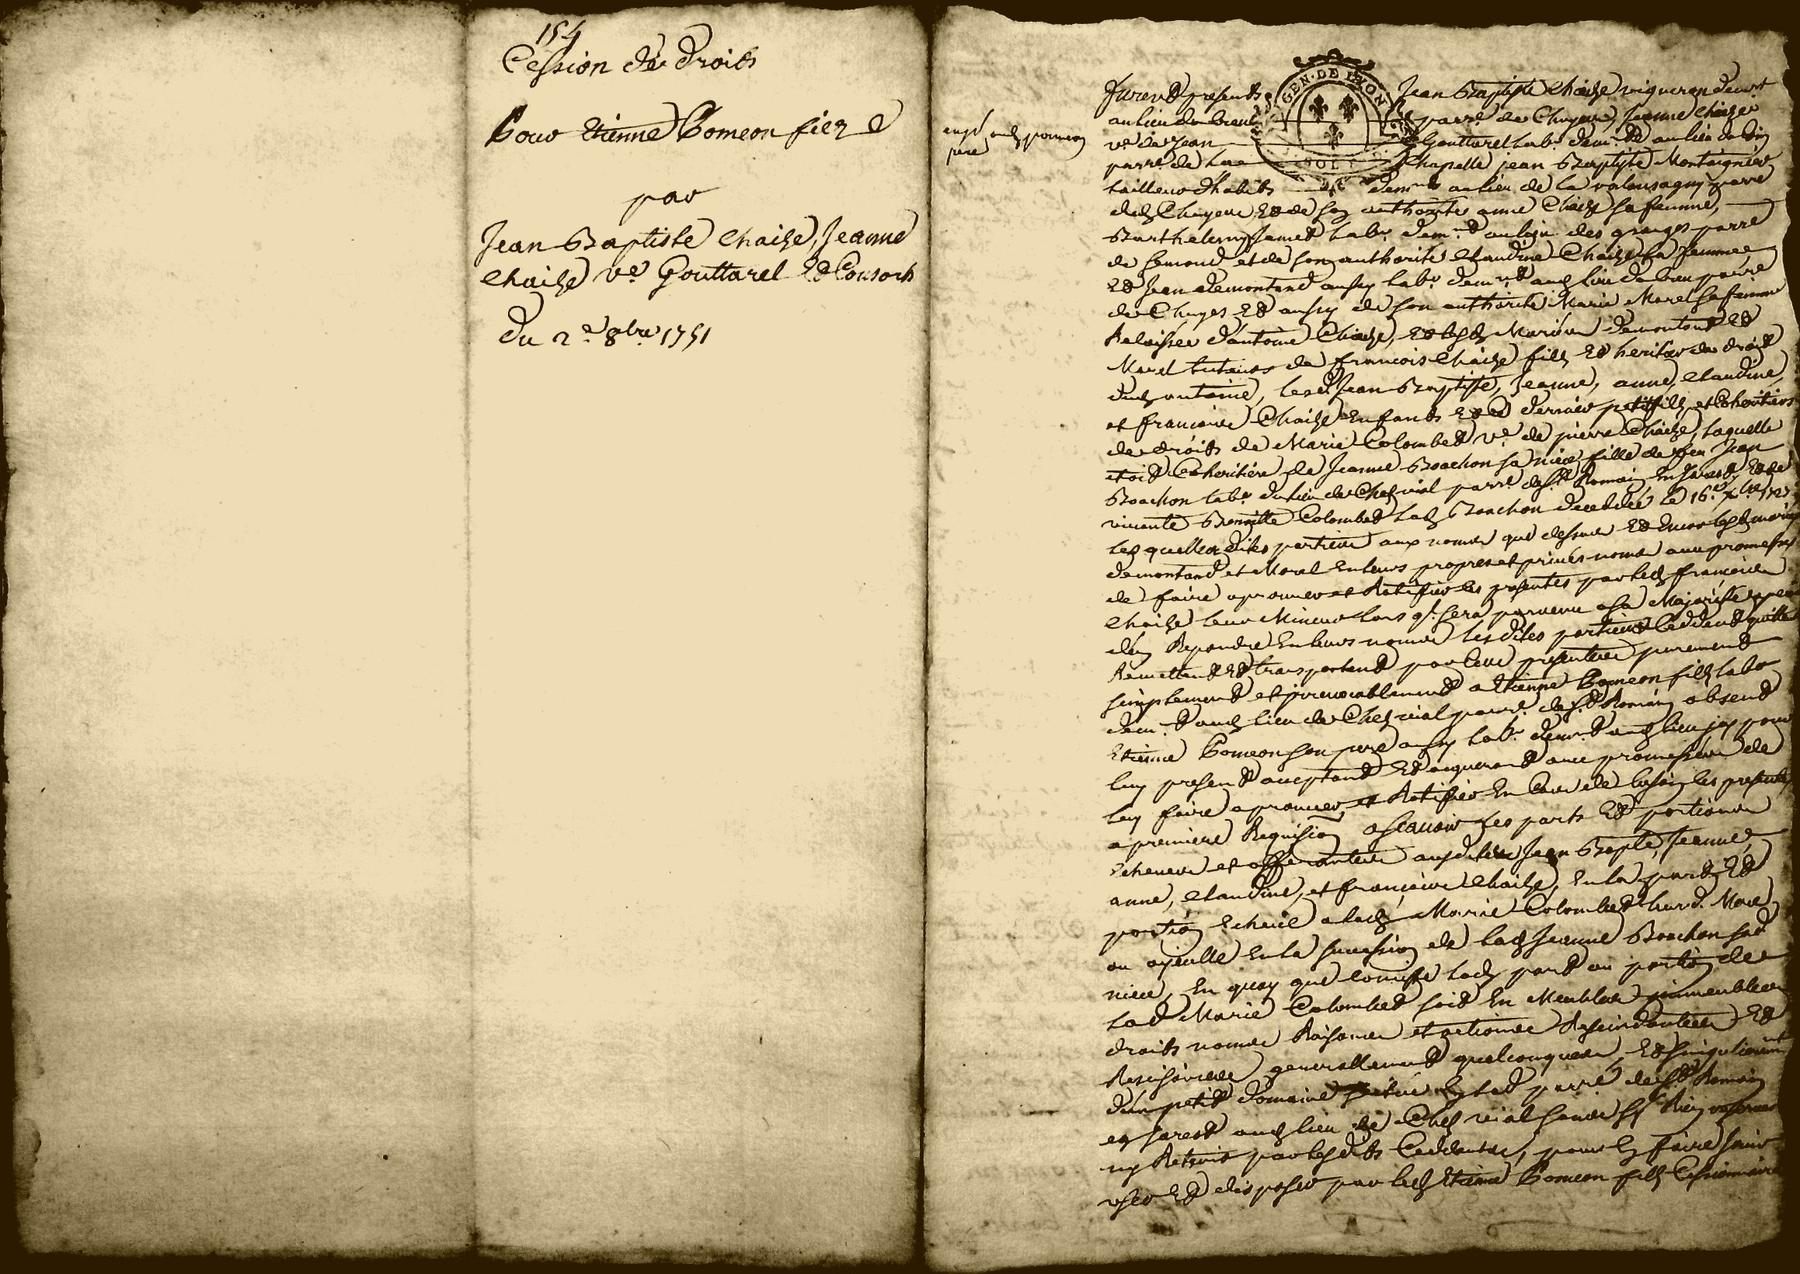 154
Cession de droits
Pour Etienne Pomeon filz
par
Jean Baptiste Chaize, Jeanne
Chaize ve Gouttarel Et Consorts
Du 2e 8bre 1751
expé aud. pomeon
père
GEN·DE LYON
SOLS
Furent presents Jean Baptiste Chaize vigneron demt
au lieu du breul parre de Chuyeux, Jeanne Chaize
ve de Jean Gouttarel labr demt au lieu de
parre de la Chapelle jean Baptiste Montaignier
tailleur d'habits demt au lieu de la valansagny parre
dud. Chuyeux Et de son authorité anne Chaize sa femme,
Barthelemy Jamet labr demt au lieu des granges parre
de Semond et de son authorité Claudine Chaize sa femme
Et Jean demontand aussy labr demt aud. lieu du breu parre
de Chuyes Et aussy de son authorité Marie Morel sa femme
Relaissée d'antoine Chaize, Et lesd. Mariés demontand Et
Morel tuteurs de francois Chaize filz Et heritier de droit
dud. antoine, lesd. Jean Baptiste, Jeanne, anne, Claudine,
et francoise Chaize Enfants Et ce dernier petit filz et Cohéritiers
de droits de Marie Colombet ve de pierre Chaize, laquelle
etoit Coheritière de Jeanne Boachon sa niece fille de feu Jean
Boachon labr du lieu de Chez vial parre de St Romain En Jarest Et de
vivante Benoitte Colombet lad. Boachon decedée le 16e xbre
Lesquelles dites parties aux noms que dessus Et Encor lesd. mariés
demontand et Morel En leurs propres et privés noms avec promesses
de faire aprouver et Ratiffier les presentes par led. francois
Chaize leur Mineur lors ql sera parvenu a sa Majorité a peine
d'en Repondre En leurs noms lesdites parties Ceddent quittent
Remettent Et transportent par Ces presentes purement
simplement et irrevocablement a Etienne Pomeon filz labr
demt aud. lieu de Chez vial parre de St Romain absent
Etienne Pomeon son pere aussy labr demt aud. lieu icy pour
luy present acceptant Et aquerant avec promesse de
luy faire aprouver et Ratiffier En Cas de besoin les presentes
a premiere Requision ascavoir les parts Et portions
Echeues et afferantes auxdites Jean Bapte, Jeanne,
anne, Claudine, et francoise Chaize, En la part Et
portion Echeue a lad. Marie Colombet leurd. Mere
ou ayeulle En la succession de lad. Jeanne Boachon sad.
niece, En quoy que Consiste lad. part ou portion de
lad. Marie Colombet soit En Meubles immeubles
droits noms Raisons et actions Rescindantes Et
Rescisoires generallement quelconques, Et singulierement
d'un petit domaine situé En lad. parre de St Romain
en Jarest aud. lieu de Chez vial sans En Rien reserver
ny Retenir par lesdits Ceddants, pour En faire Jouir
user Et disposer par led. Etienne Pomeon filz Cessionnaire